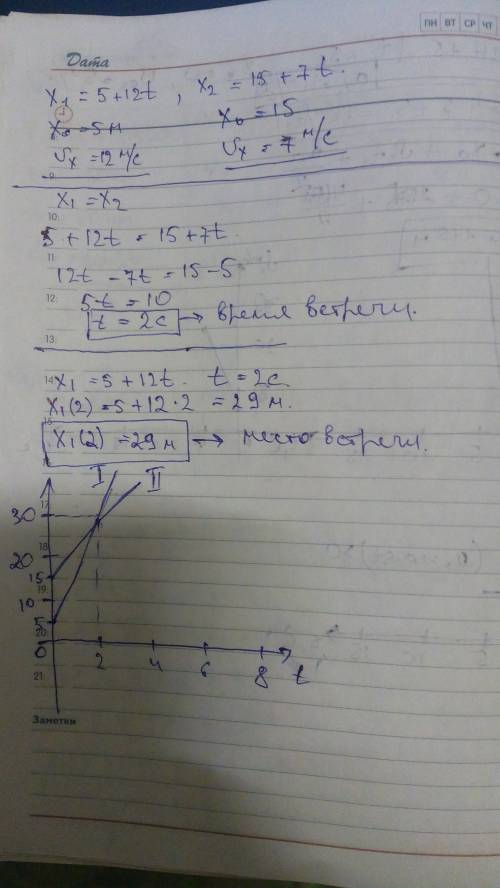 ПН ВТ СР ЧТ
Дата
x₁ = 5+12t , x₂ = 15+7t.
x₀ = 5м x₀ = 15
υₓ = 12 м/с υₓ = 7 м/с
9
x₁ = x₂
10
5 + 12t = 15+7t.
11
12t - 7t = 15-5
12 5t = 10
t = 2с → время встречи.
13
14 x₁ = 5+12t. t = 2с
x₁(2) = 5+12·2 = 29м.
15
x₁(2) = 29м → место встречи.
I II
17
30
18
20
15
19
10
5
20
0 2 4 6 8 t
21
Заметки